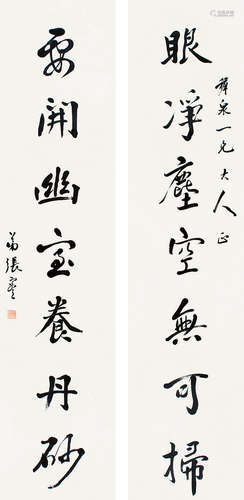 眼凈塵空無可掃
泉一兄大人正
要開幽室養丹砂
弟張